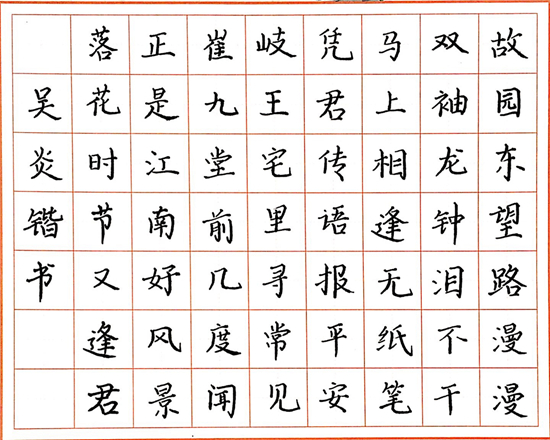 故园东望路漫漫
双袖龙钟泪不干
马上相逢无纸笔
凭君传语报平安
岐王宅里寻常见
崔九堂前几度闻
正是江南好风景
落花时节又逢君
吴炎锴书